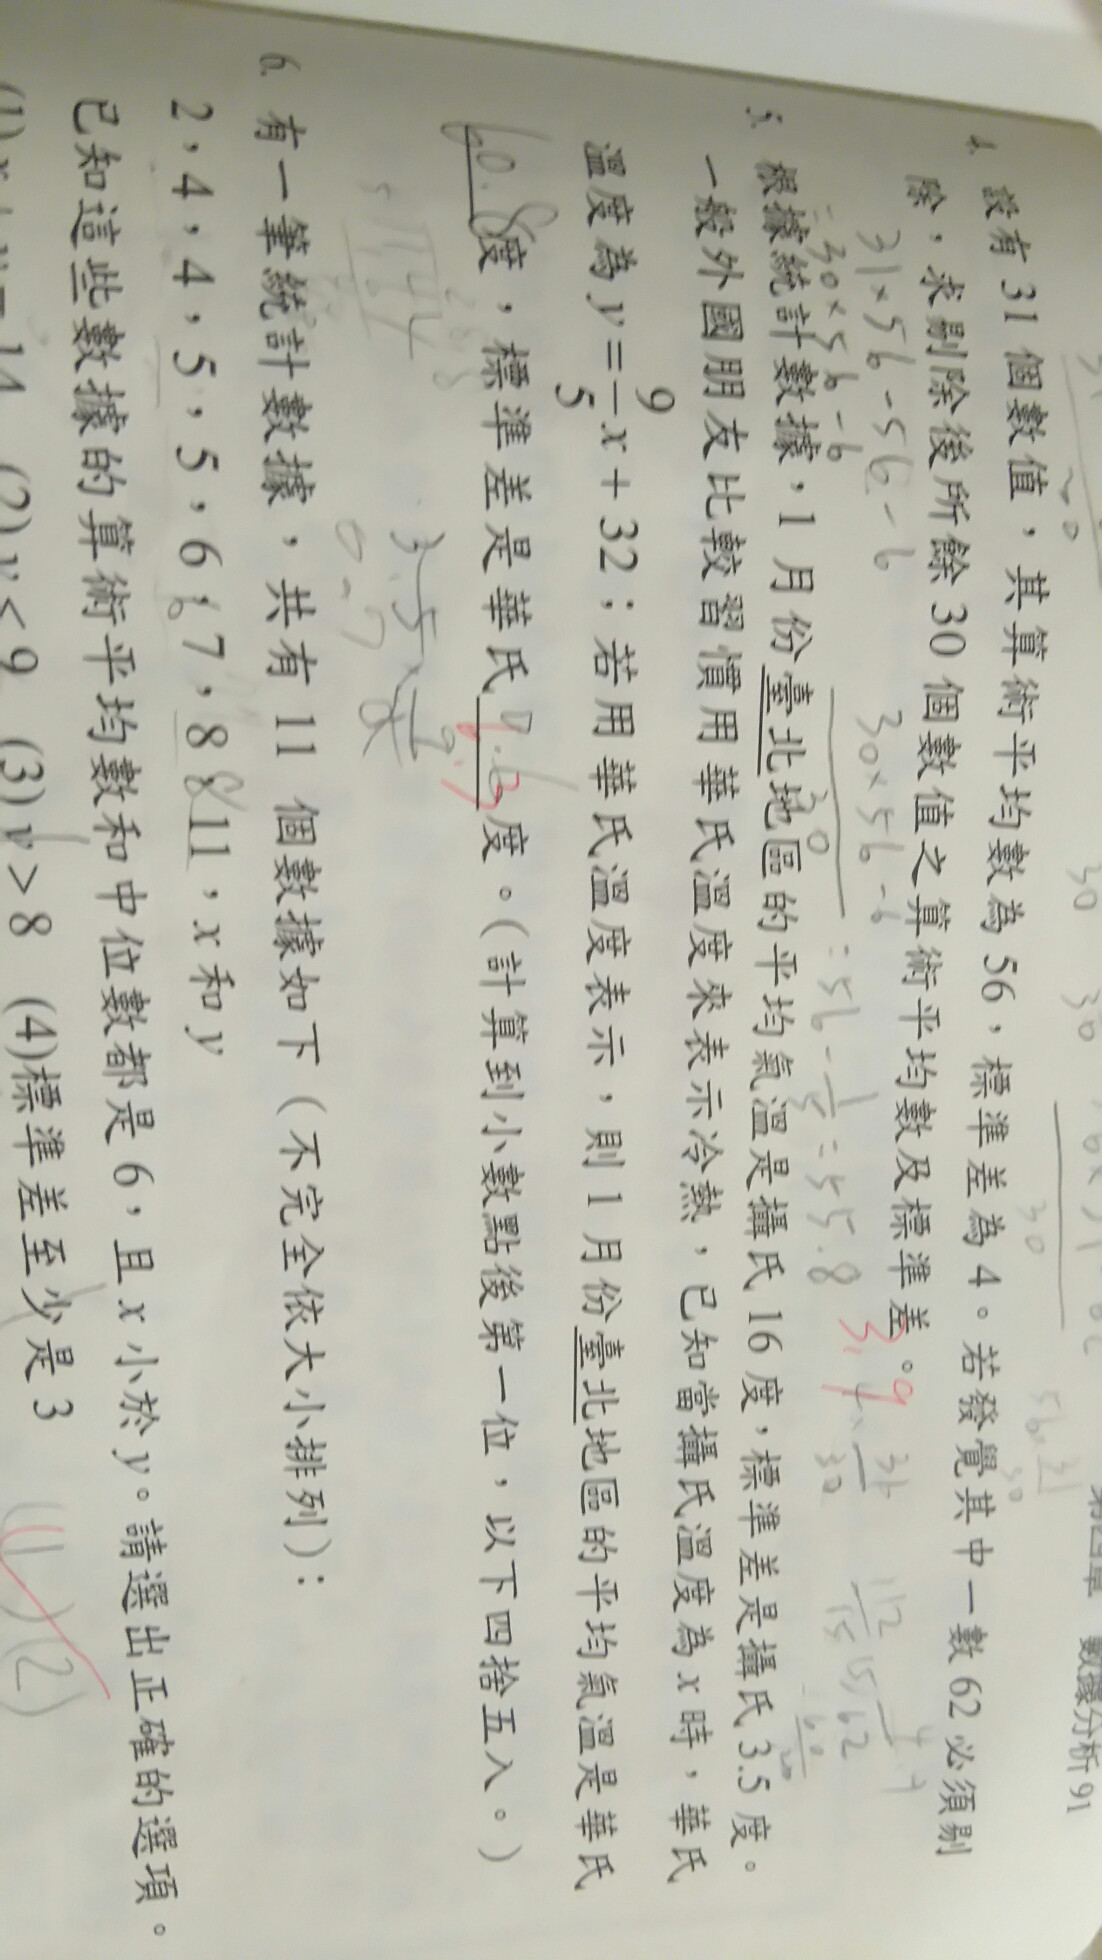 第四章 數據分析 91
4. 設有 31 個數值，其算術平均數為 56，標準差為 4。若發覺其中一數 62 必須剔
除，求剔除後所餘 30 個數值之算術平均數及標準差。
3.9
31×56-56-6
30×56-6
=56-1/5=55.8
=30×56-6
30
5. 根據統計數據，1 月份臺北地區的平均氣溫是攝氏 16 度，標準差是攝氏 3.5 度。
一般外國朋友比較習慣用華氏溫度來表示冷熱，已知當攝氏溫度為 x 時，華氏
溫度為 y = 9/5 x + 32；若用華氏溫度表示，則 1 月份臺北地區的平均氣溫是華氏
60.8 度，標準差是華氏 6.3 度。（計算到小數點後第一位，以下四捨五入。）
3.5×
0.7
5 144
6. 有一筆統計數據，共有 11 個數據如下（不完全依大小排列）：
2，4，4，5，5，6，7，8，11，x 和 y
已知這些數據的算術平均數和中位數都是 6，且 x 小於 y。請選出正確的選項。
(1) x + y = 14 (2) y < 9 (3) y > 8 (4)標準差至少是 3
(1)(2)